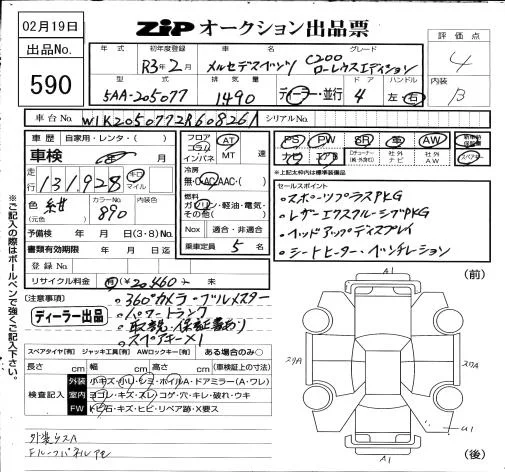 02月19日
ZIP オークション出品票
出品No.
590
評価点
4
内装
B
年式 初年度登録 車名 グレード
R3年2月 メルセデスベンツ C200 ローレウスエディション
型式 排気量 ドア ハンドル
5AA-205077 1490 ディーラー・並行 4 左・右
車台No. W1K2050772R608261 シリアルNo.
車歴 自家用・レンタ・( )
車検 年 月
走行 131,928 キロ マイル
色 (元色) 紺 カラーNo. 890 内装色
予備検 年 月 日(3・8)No.
書類有効期限 年 月 日迄
登録No.
リサイクル料金 有(¥20,460)- 未
フロア コラム インパネ AT MT 速
冷房 無・AC・AAC・( )
燃料 ガソリン・軽油・電気・その他( )
Nox 適合・非適合
乗車定員 5 名
PS PW SR 革 AW 新車時保証書
ナビ エアB Dチューナー(純・外含む) 社外ナビ 社外AW スペアキー
※上記太枠内は標準装備品
セールスポイント
・スポーツプラスPKG
・レザーエクスクルーシブPKG
・ヘッドアップディスプレイ
・シートヒーター・ベンチレーション
(注意事項)
ディーラー出品
・360°カメラ・ブルメスター
・パワートランク
・取説・保証書あり
・スペアキー×1
スペアタイヤ[有] ジャッキ工具[有] AWロックキー[有] ある場合のみ○
長さ cm 幅 cm 高さ cm (車検証上の寸法)
検査記入
外装 小キズ・小レ・シミ・ホイルA・ドアミラー(A・ワレ)
室内 ヨゴレ・キズ・スレ・コゲ・穴・キレ・破れ・ウキ
FW トビ石・キズ・ヒビ・リペア跡・X要ス
外装ウスA
※ご記入の際はボールペンで強くご記入下さい。
(前)
A1
スクA
スワA
U1
A1
(後)